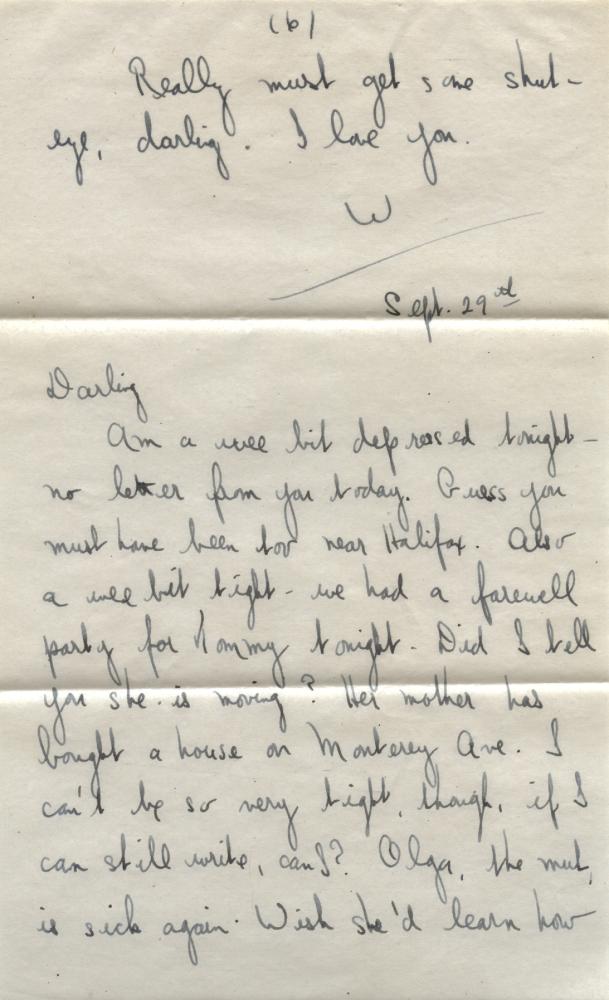 (6)
Really must get some shut-
eye, darling. I love you.
W
Sept. 29th
Darling
Am a wee bit depressed tonight -
no letter from you today. Guess you
must have been too near Halifax. Also
a wee bit tight - we had a farewell
party for Tommy tonight. Did I tell
you she is moving? Her mother has
bought a house on Monterey Ave. I
can't be so very tight, though, if I
can still write, can I? Olga, the mut,
is sick again. Wish she'd learn how